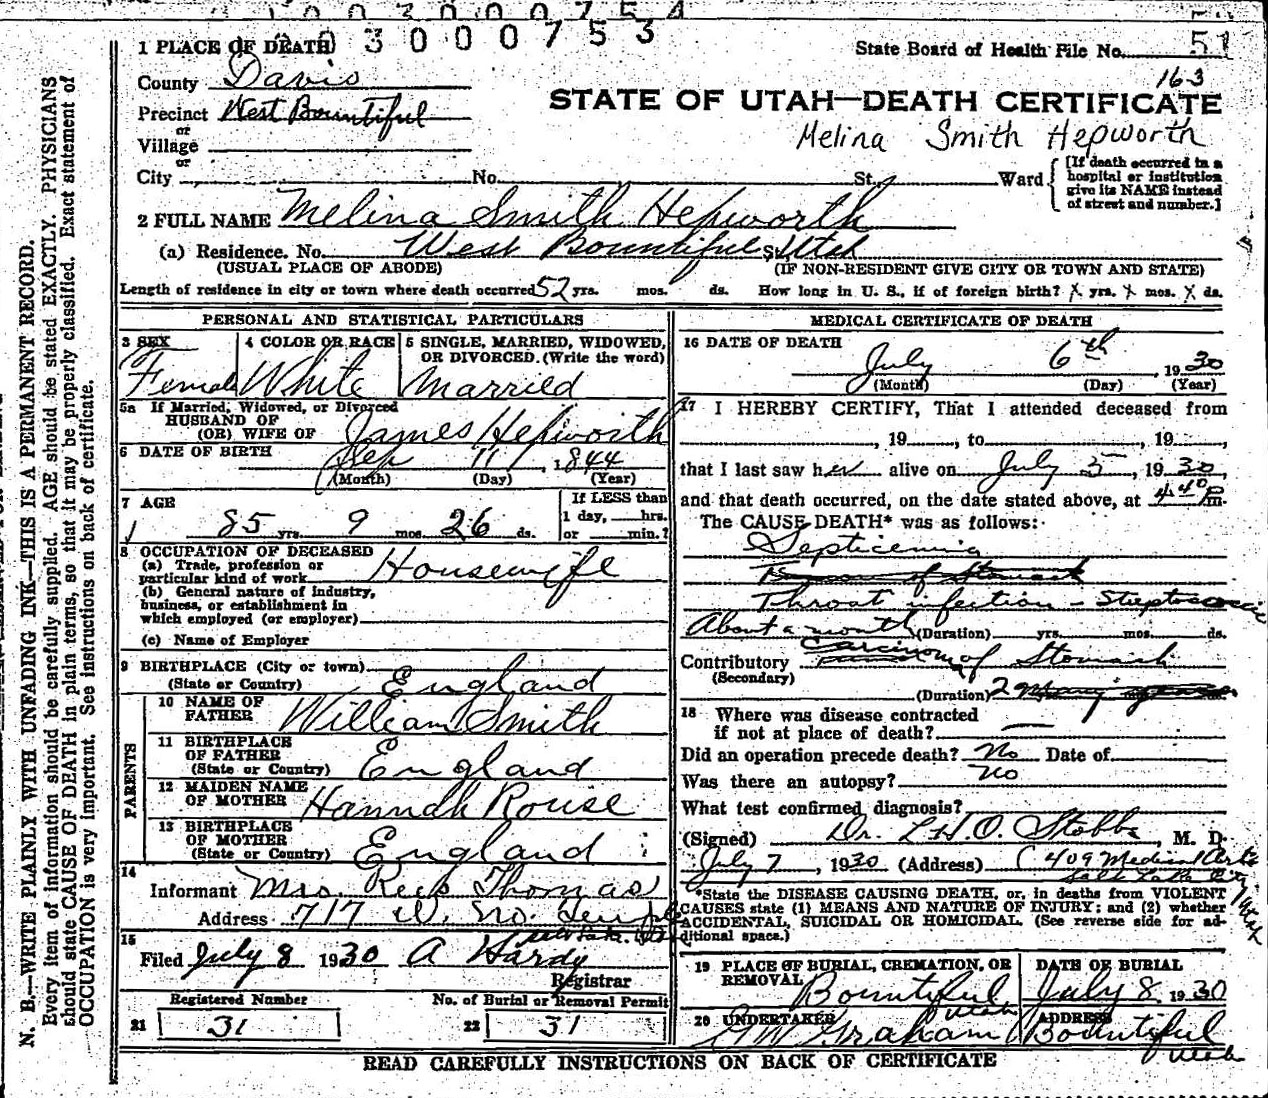 3000753
1 PLACE OF DEATH
State Board of Health File No. 51
County Davis
163
Precinct West Bountiful
STATE OF UTAH—DEATH CERTIFICATE
or
Village
Melina Smith Hepworth
or
City No. St. Ward
[If death occurred in a hospital or institution give its NAME instead of street and number.]
2 FULL NAME Melina Smith Hepworth
(a) Residence. No. West Bountiful St. Utah
(USUAL PLACE OF ABODE) (IF NON-RESIDENT GIVE CITY OR TOWN AND STATE)
Length of residence in city or town where death occurred 52 yrs. mos. ds. How long in U. S., if of foreign birth? x yrs. x mos. x ds.
PERSONAL AND STATISTICAL PARTICULARS
3 SEX 4 COLOR OR RACE 5 SINGLE, MARRIED, WIDOWED, OR DIVORCED. (Write the word)
Female White Married
5a If Married, Widowed, or Divorced
HUSBAND OF
(OR) WIFE OF James Hepworth
6 DATE OF BIRTH Sep 11, 1844
(Month) (Day) (Year)
7 AGE If LESS than
85 yrs. 9 mos. 26 ds. 1 day, hrs. or min.?
8 OCCUPATION OF DECEASED
(a) Trade, profession or particular kind of work Housewife
(b) General nature of industry,
business, or establishment in
which employed (or employer)
(c) Name of Employer
9 BIRTHPLACE (City or town)
(State or Country) England
PARENTS
10 NAME OF FATHER William Smith
11 BIRTHPLACE OF FATHER
(State or Country) England
12 MAIDEN NAME OF MOTHER Hannah Rouse
13 BIRTHPLACE OF MOTHER
(State or Country) England
14
Informant Mrs. Thomas
Address 717 No. Temple
15
Filed July 8 1930 A Hardy
Registrar
Registered Number No. of Burial or Removal Permit
21 31 22 31
MEDICAL CERTIFICATE OF DEATH
16 DATE OF DEATH
July 6th, 1930
(Month) (Day) (Year)
17 I HEREBY CERTIFY, That I attended deceased from
, 19 , to , 19 ,
that I last saw her alive on July 5, 1930
and that death occurred, on the date stated above, at 4 40 P m.
The CAUSE DEATH* was as follows:
Septicemia
Throat infection -
About a month (Duration) yrs. mos. ds.
Contributory Carcinoma of Stomach
(Secondary)
(Duration) 2
18 Where was disease contracted
if not at place of death?
Did an operation precede death? No Date of
Was there an autopsy? no
What test confirmed diagnosis?
(Signed) Dr. L.W.O. Stobbe, M. D.
July 7, 1930 (Address) 409 Medical Arts
Salt Lake City Utah
*State the DISEASE CAUSING DEATH, or, in deaths from VIOLENT
CAUSES state (1) MEANS AND NATURE OF INJURY; and (2) whether
ACCIDENTAL, SUICIDAL OR HOMICIDAL. (See reverse side for additional space.)
19 PLACE OF BURIAL, CREMATION, OR REMOVAL DATE OF BURIAL
Bountiful Utah July 8 1930
20 UNDERTAKER ADDRESS
Graham Bountiful Utah
READ CAREFULLY INSTRUCTIONS ON BACK OF CERTIFICATE
N. B.—WRITE PLAINLY WITH UNFADING INK—THIS IS A PERMANENT RECORD.
Every item of information should be carefully supplied. AGE should be stated EXACTLY. PHYSICIANS
should state CAUSE OF DEATH in plain terms, so that it may be properly classified. Exact statement of
OCCUPATION is very important. See instructions on back of certificate.